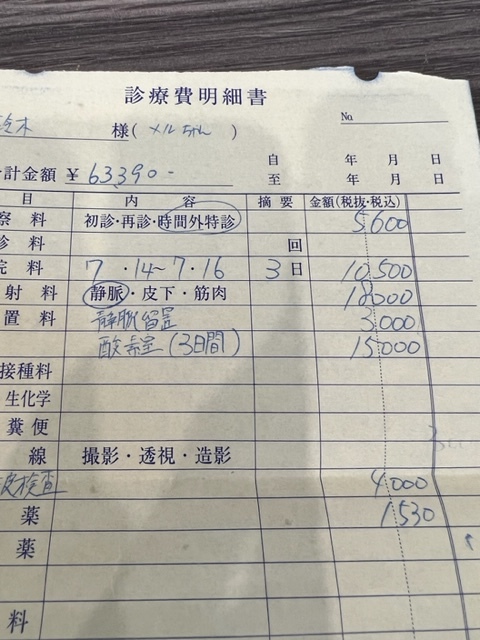 診療費明細書
鈴木 様(メルちゃん) No.
自 年 月 日
計金額 ¥63,390- 至 年 月 日
目 内容 摘要 金額(税抜・税込)
察料 初診・再診・時間外特診 5,600
診料 回
院料 7・14~7・16 3日 10,500
射料 静脈・皮下・筋肉 18,000
置料 静脈留置 3,000
酸素室(3日間) 15,000
接種料
生化学
糞便
線 撮影・透視・造影
検査 4,000
薬 1530
薬
料